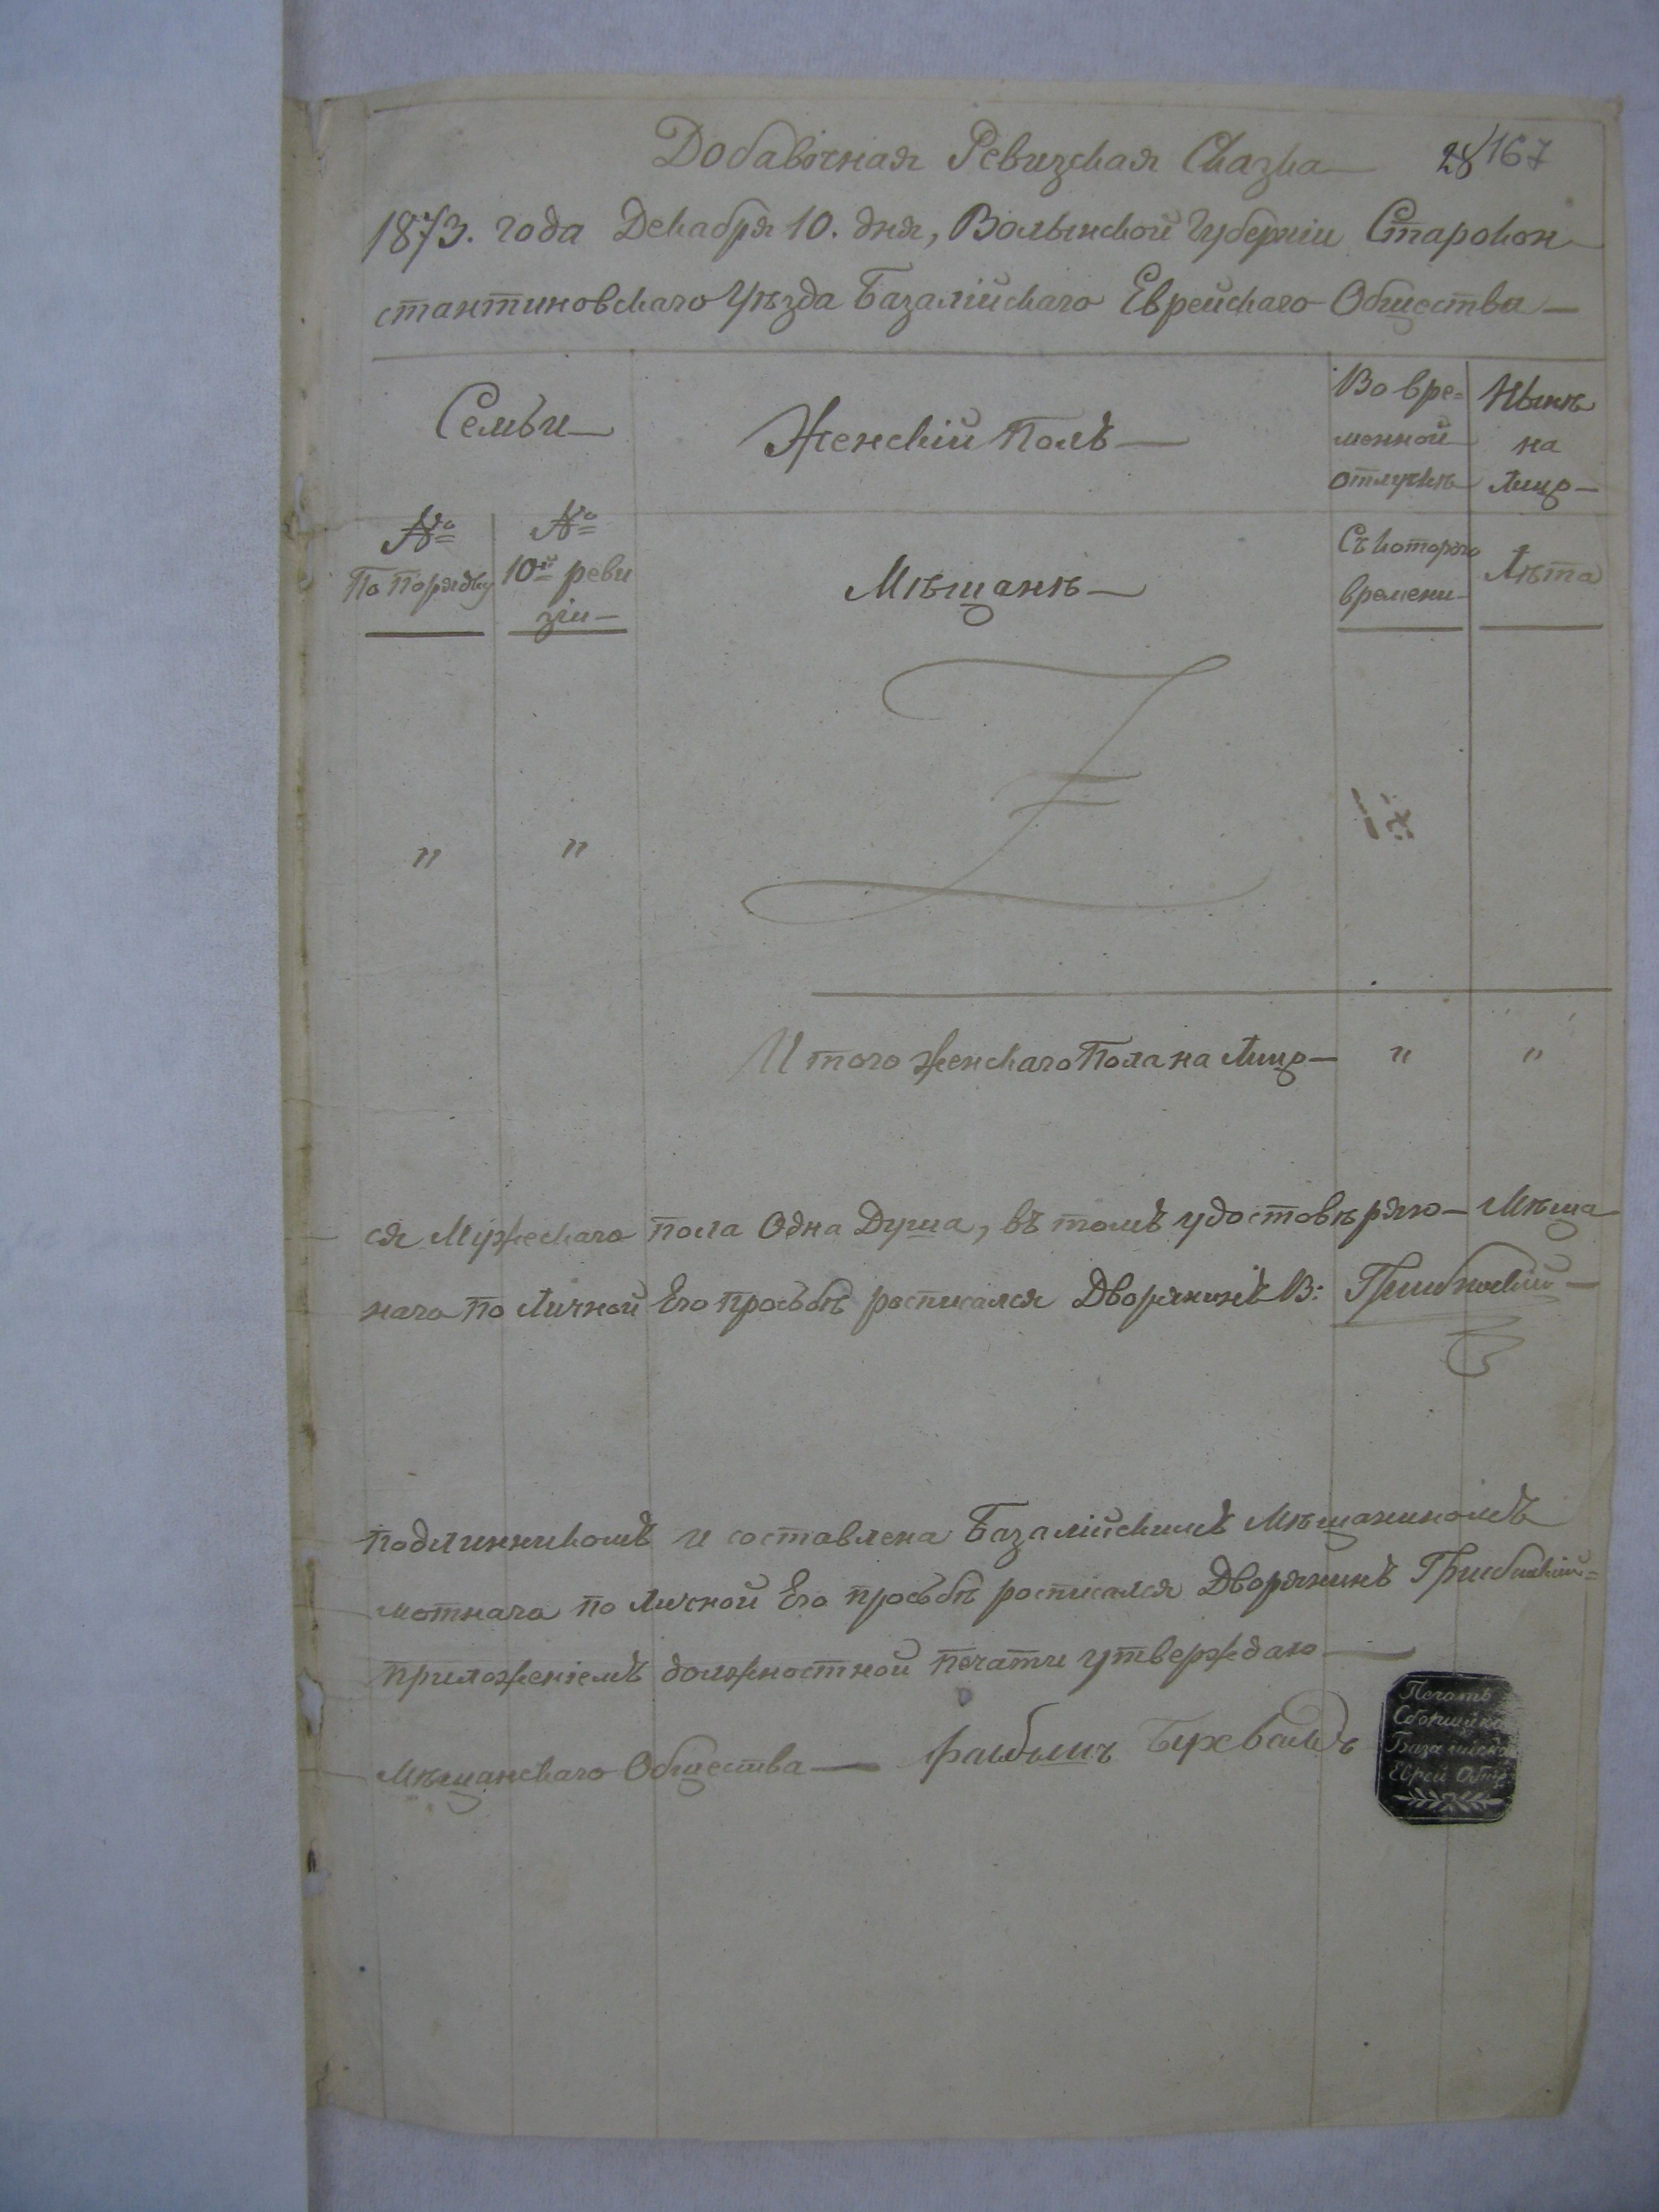 Добавочная Ревизская Сказка 28 167
1873. года Декабря 10. дня, Волынской Губерніи Старокон
стантиновскаго Уѣзда Базалійскаго Еврейскаго Общества
Семьи
Женскій Полъ
Во вре=
менной
отлучкѣ
Нынѣ
на
Лицо
№
По порядку
№
10й реви
зіи
Мѣщанѣ
Съ котораго
времени
Лѣта
" "
Итого женскаго Пола на Лицо " "
ся Мужескаго пола Одна Душа, въ томъ удостовѣряю Мѣща
наго по Личной Его просьбѣ росписался Дворянинъ В:
подлинникомъ и составлена Базалійскимъ Мѣщаниномъ
мотнаго по Личной Его просьбѣ росписался Дворянинъ
приложеніемъ должностной печати утверждаю
Мѣщанскаго Общества
Печать
Сборщика
Базалійска
Еврей Общ